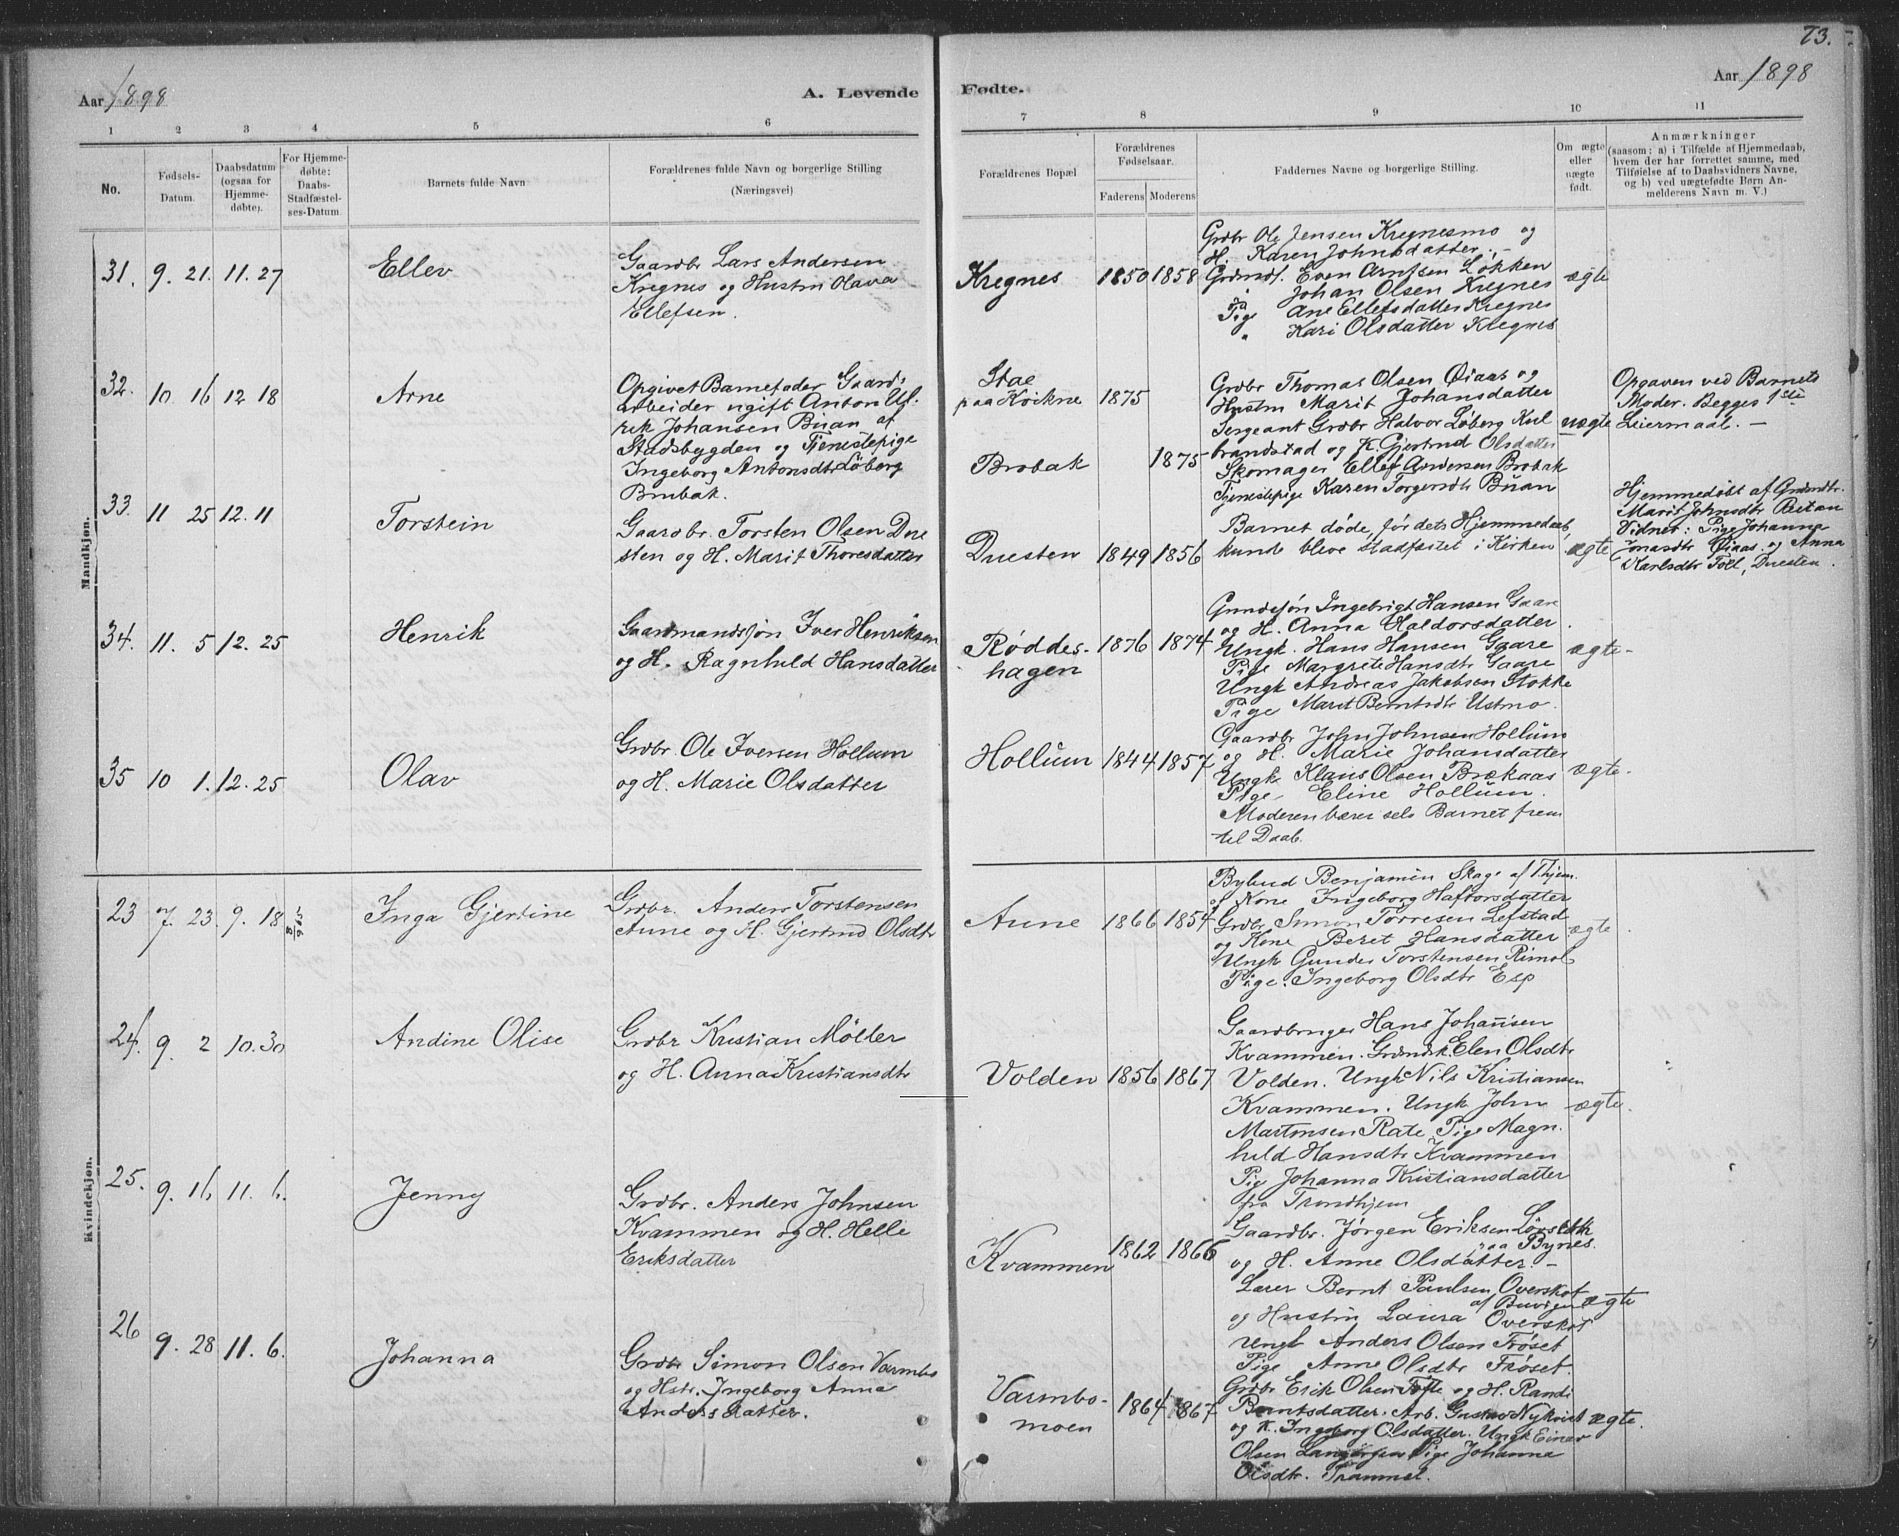 73.
Aar 1898
A. Levende Fødte.
Aar 1898
1 2 3 4 5 6 7 8 9 10 11
No.
Fødsels-
Datum.
Daabsdatum
(ogsaa for
Hjemme-
døbte).
For Hjemme-
døbte:
Daabs-
Stadfæstel-
ses-Datum
Barnets fulde Navn
Forældrenes fulde Navn og borgerlige Stilling
(Næringsvei)
Forældrenes Bopæl
Forældrenes
Fødselsaar.
Faderens Moderens
Faddernes Navne og borgerlige Stilling.
Om ægte
eller
uægte
født.
Anmærkninger
(saasom: a) i Tilfælde af Hjemmedaab,
hvem der har forrettet samme, med
Tilføielse af to Daabsvidners Navne,
og b) ved uægtefødte Børn An-
melderens Navn m. V.)
Mandkjøn.
31. 9. 21. 11. 27
Ellev
Gaardbr Lars Andersen
Kregnes og Hustru Olava
Ellefsen.
Kregnes 1850 1858
Grdbr Ole Jensen Kregnesmo og
H. Karen Johnsdatter. –
Grdmd. Even Arntsen Løkken
" Johan Olsen Kregnes
Pige Ane Ellefsdatter Kregnes
" Kari Olsdatter Kregnes
ægte
32. 10 16 12 18
Arne
Opgivet Barnefader Gaard-
arbeider ugift Anton Ul-
rik Johansen Buan af
Stadsbygden og Tjenestepige
Ingeborg Antonsdtr Løberg
Brubak.
Stae
paa Kvikne 1875
Brobak 1875
Grdbr Thomas Olsen Øiaas og
Hustru Marit Johansdatter
Sergeant Grdbr Halvor Løberg Kul
brandstad og K. Gjertrud Olsdatter
Skomager Ellef Andersen Brobak
Tjenestepige Karen Torgersdtr Buan
uægte
Opgaven ved Barnets
Moder. Begges 1ste
Leiermaal. –
33. 11 25 12. 11
Torstein
Gaardbr. Torsten Olsen Due
sten og H. Marit Thoresdatter
Duesten 1849 1856
Barnet døde, før dets Hjemmedaab
kunde bleve stadfæstet i Kirken
ægte
Hjemmedøbt af Grdmdtr.
Marit Johnsdtr Betan
Vidner: Pige Johanna
Jonasdtr Øiaas og Anna
Karlsdtr Foll, Duesten.
34. 11. 5 12. 25
Henrik
Gaardmandssøn Iver Henriksen
og H. Ragnhild Hansdatter
Røddes-
hagen 1876 1874
Grundesjøn Ingebrigt Hansen Gaare
og H. Anna Haldorsdatter.
Ungk. Hans Hansen Gaare
Pige Margrete Hansdtr Gaare
Ungk Andreas Jakobsen Stokke
Pige Marit Berntsdtr Ustmo.
ægte-
35 10 1. 12. 25
Olav
Grdbr. Ole Iversen Hollum
og H. Marie Olsdatter
Hollum 1844 1857
Gaardbr John Johnsen Hollum
og H. Marie Johansdatter
Ungk Klaus Olsen Brækaas
Pige Eline Hollum.
Moderen bærer selv Barnet frem
til Daab.
ægte-
Kvindekjøn.
23 7. 23. 9. 18
Inga Gjertine
Grdbr. Anders Torstensen
Aune og H. Gjertrud Olsdtr
Aune 1866 1854
Bylud Benjamin Skage af Thjem.
og Kone Ingeborg Haftorsdatter
Grdbr Simon Torresen Lefstad
og Kone Beret Hansdatter
Ungk Gunder Torstensen Rimol
Pige. Ingeborg Olsdtr Esp
ægte.
24. 9. 2 10. 30
Andine Olise
Grdbr Kristian Möller
og H. Anna Kristiansdtr
Volden 1856 1867
Gaardbruger Hans Johansen
Kvammen. Grdmdsk. Elen Olsdtr
Volden. Ungk Nils Kristiansen
Kvammen. Ungk John
Martinsen Rate Pige Magn.
hild Hansdtr Kvammen
Pig Johanna Kristiansdatter
fra Trondhjem
ægte.
25. 9. 16 11. 6.
Jenny
Grdbr. Anders Johnsen
Kvammen og H. Helle
Eriksdatter
Kvammen 1862 1866
Gaardbr. Jørgen Eriksen
paa Bynes.
og H. Anne Olsdatter. –
Lærer Bernt Paulsen Overskot
af Buvigen
og Hustru Laura Overskot
Ungk Anders Olsen Frøset
Pige Anne Olsdtr Frøset.
ægte
26 9. 28 11. 6.
Johanna
Grdbr Simon Olsen Varmbo
og Hstr. Ingeborg Anna
Andersdatter.
Varmbo-
moen 1864 1867
Grdbr Erik Olsen Tofte og H. Randi
Berntsdatter. Arb. Gustav Nykvist
og K. Ingeborg Olsdatter. Ungk Einar
Olsen Langørgen Pige Johanna
Olsdtr. Trammel.
ægte.